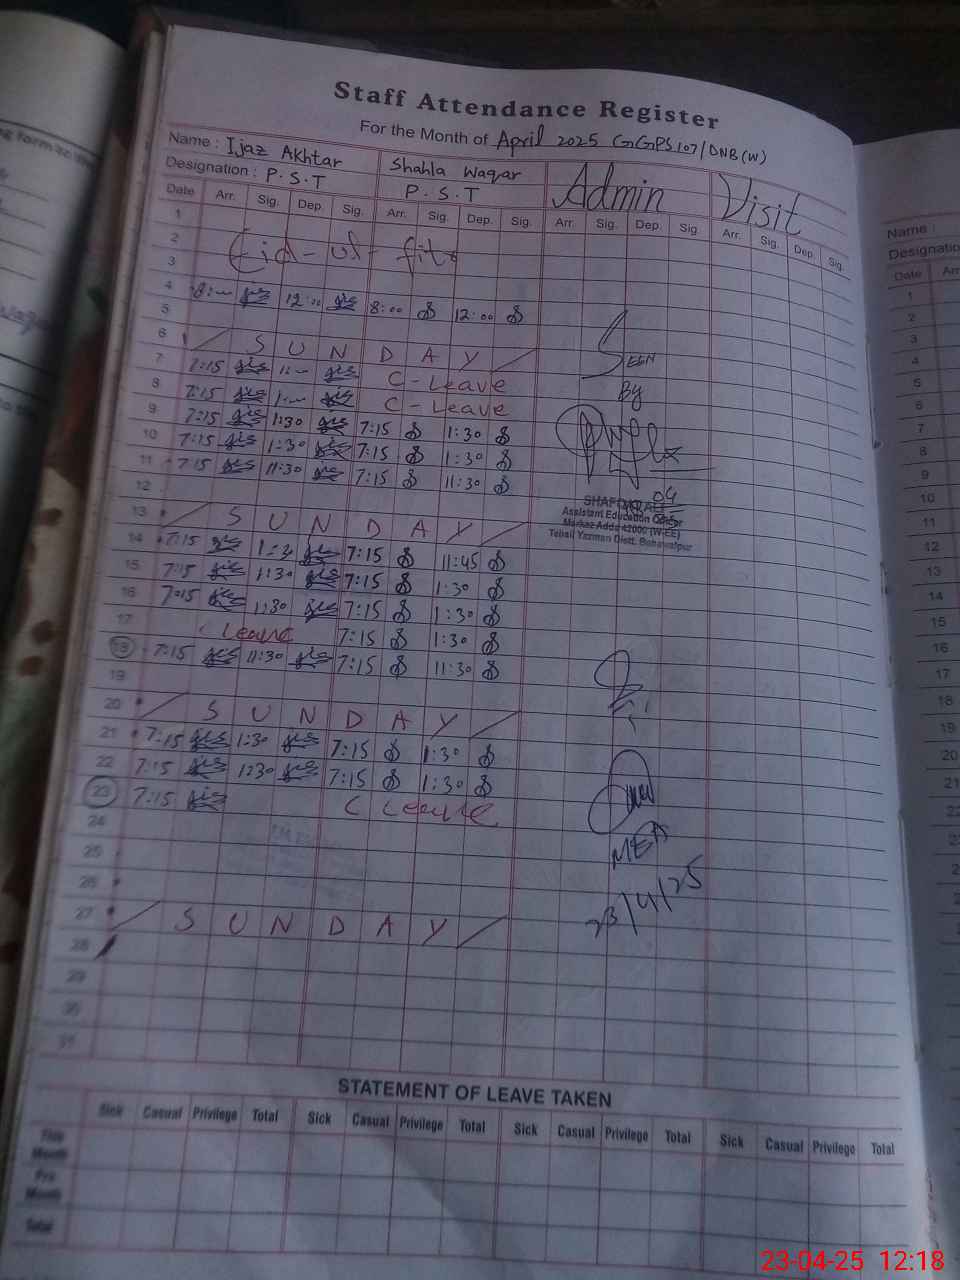 Staff Attendance Register
For the Month of April 2025 GGPS 107/DNB(W)
Name : Ijaz Akhtar Shahla Waqar Admin Visit
Designation : P.S.T P.S.T
Date Arr. Sig. Dep. Sig. Arr. Sig. Dep. Sig. Arr. Sig. Dep. Sig. Arr. Sig. Dep. Sig.
1
2 Eid-ul-fitr
3
4 8:00 12:00 8:00 12:00
5
6 S U N D A Y
7 7:15 C-Leave
8 7:15 C-Leave
9 7:15 1:30 7:15 1:30
10 7:15 1:30 7:15 1:30
11 7:15 11:30 7:15 11:30
12
13 S U N D A Y
14 7:15 7:15 11:45
15 7:15 1:30 7:15 1:30
16 7:15 1:30 7:15 1:30
17 Leave 7:15 1:30
18 7:15 11:30 7:15 11:30
19
20 S U N D A Y
21 7:15 1:30 7:15 1:30
22 7:15 1:30 7:15 1:30
23 7:15 C Leave
24
25
26
27 S U N D A Y
28
29
30
31
Seen
By
Assistant Education Officer
Tehsil Yazman Distt. Bahawalpur
MEA
23/4/25
STATEMENT OF LEAVE TAKEN
Sick Casual Privilege Total Sick Casual Privilege Total Sick Casual Privilege Total Sick Casual Privilege Total
This Month
Pre Month
Total
Name :
Date
1
2
3
4
5
6
7
8
9
10
11
12
13
14
15
16
17
18
19
20
21
22
23-04-25 12:18